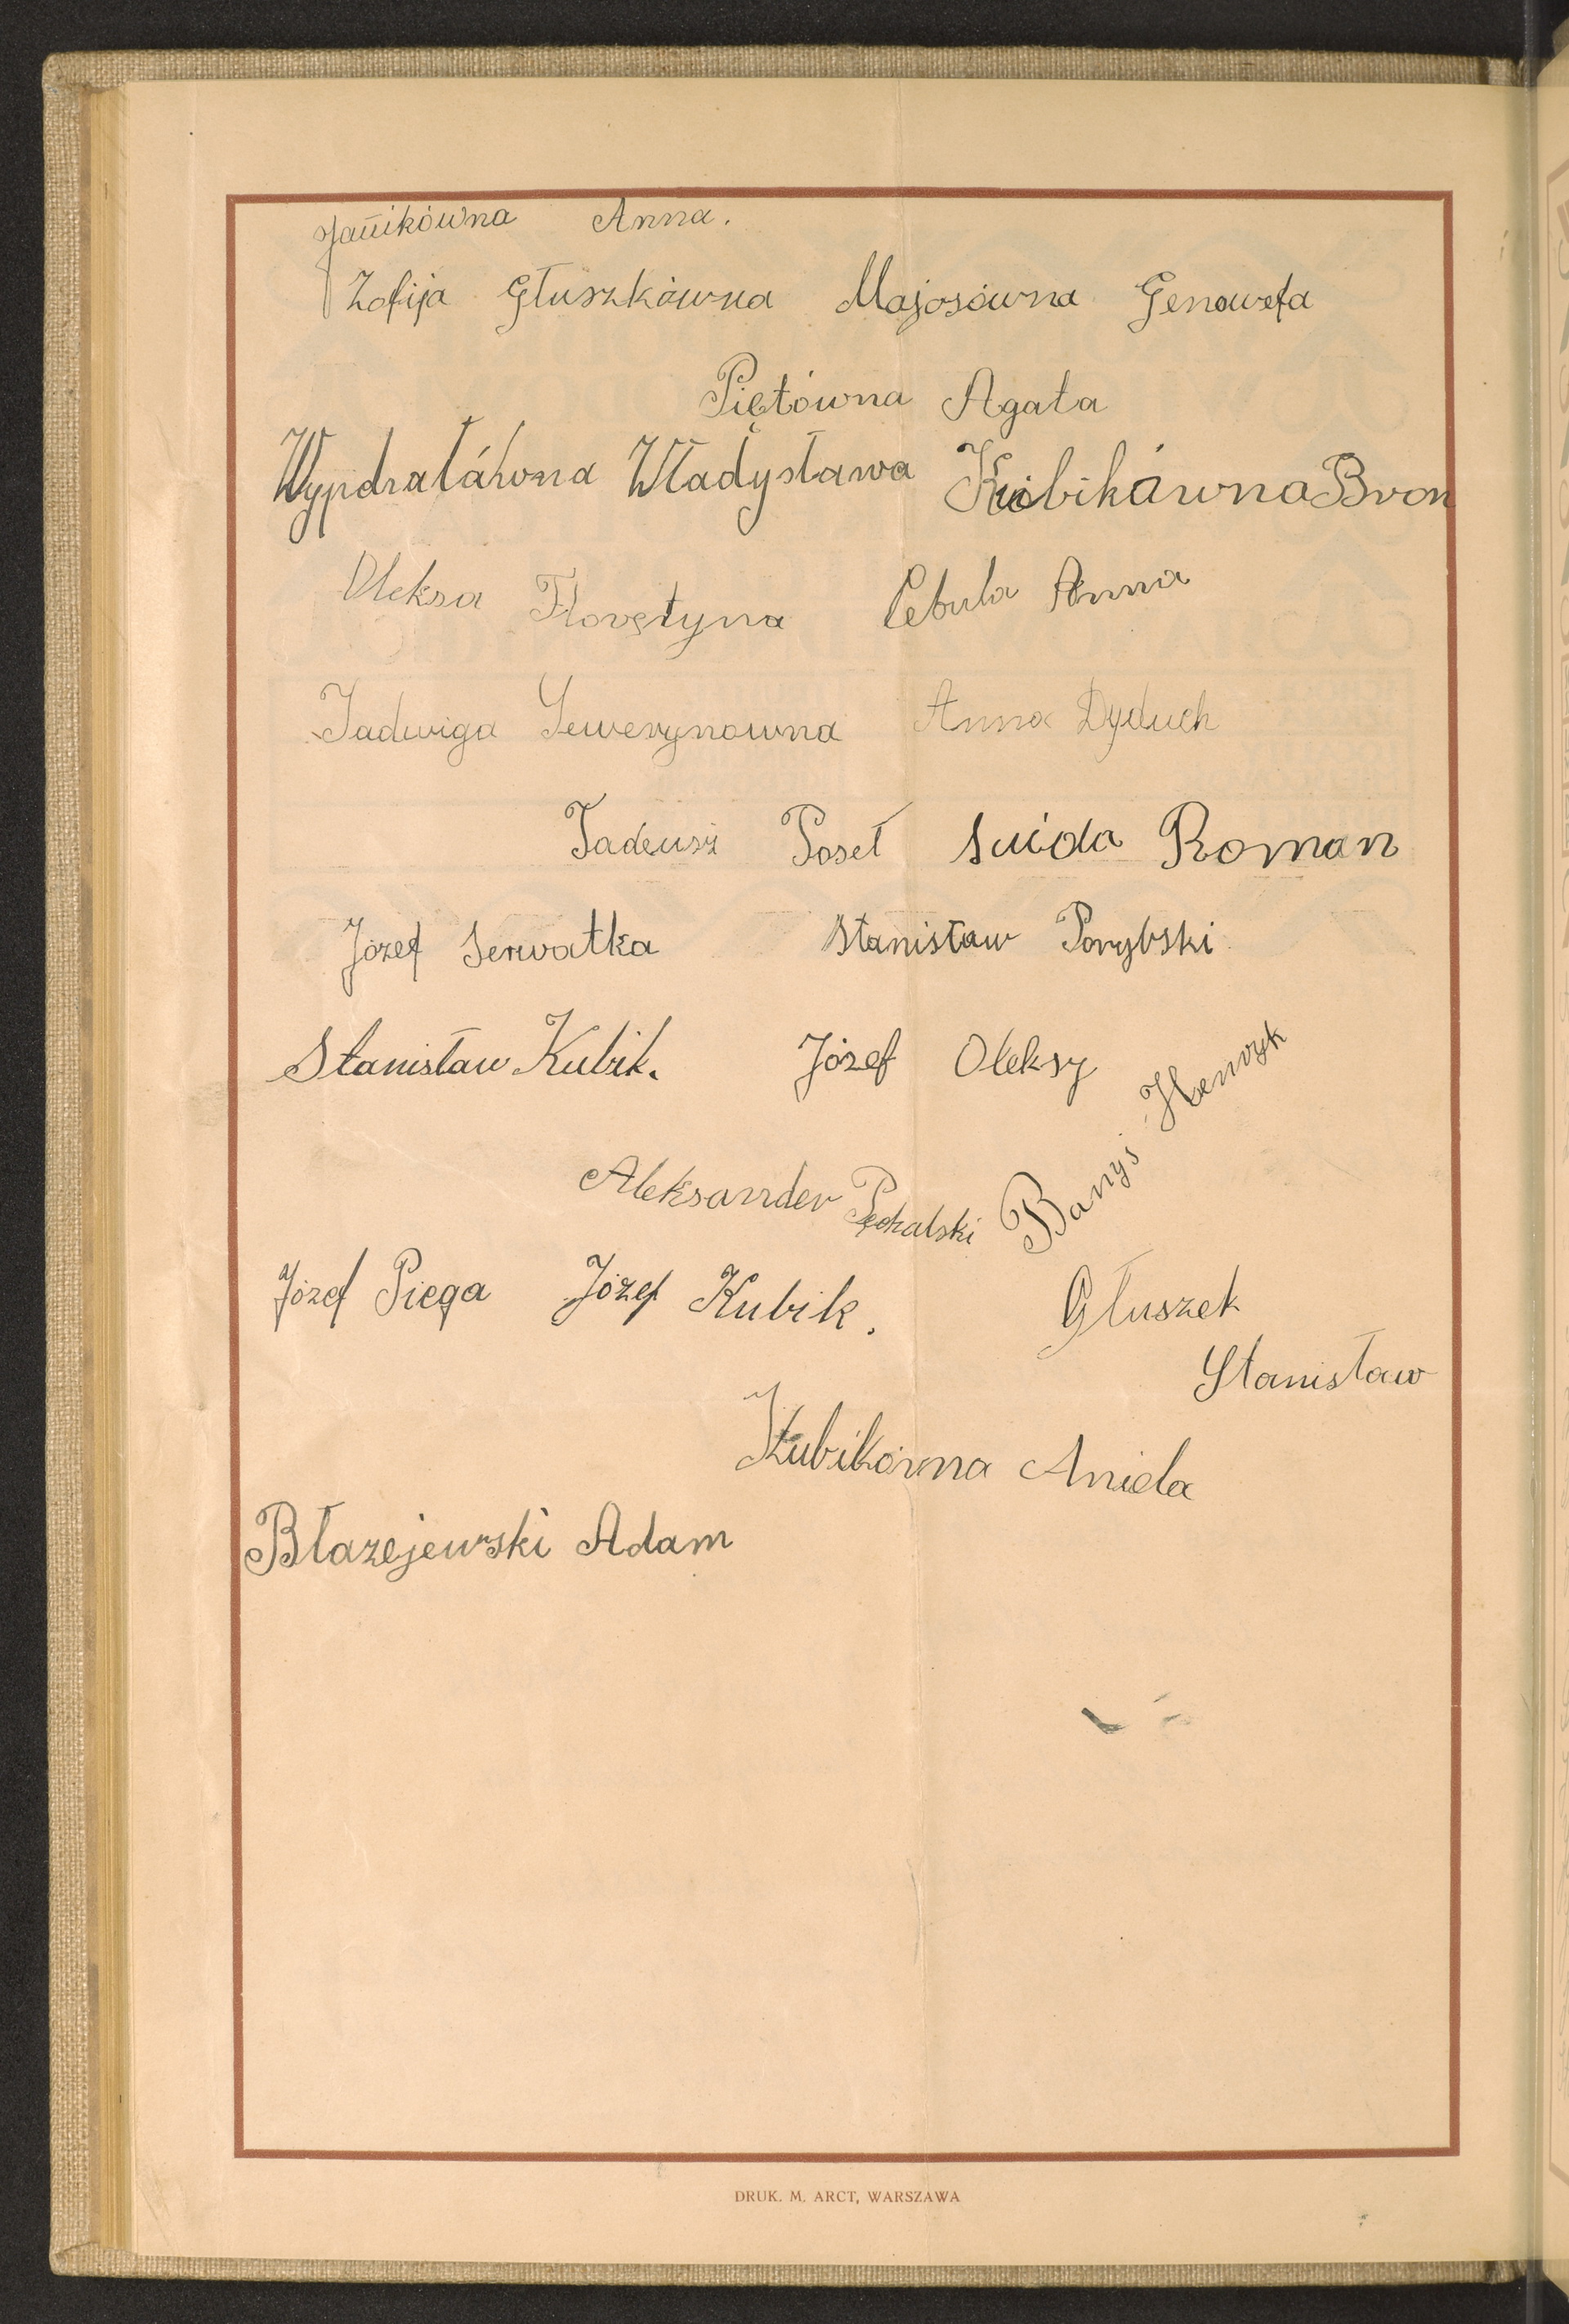 Janikówna Anna.
Zofija Głuszkówna Majosówna Genowefa
Piętówna Agata
Wypdratáwna Władysława Kubikówna Bron
Oleksa Florętyna Cebula Anna
Jadwiga Sewerynowna Anna Dyduch
Tadeusz Poseł Suida Roman
Józef Serwatka Stanisław Porybski
Stanisław Kubik. Józef Oleksy
Aleksander Pękalski Banyś Henryk
Józef Pięga Józef Kubik. Głuszek
Stanisław
Kubikówna Aniela
Błazejewski Adam
DRUK. M. ARCT, WARSZAWA